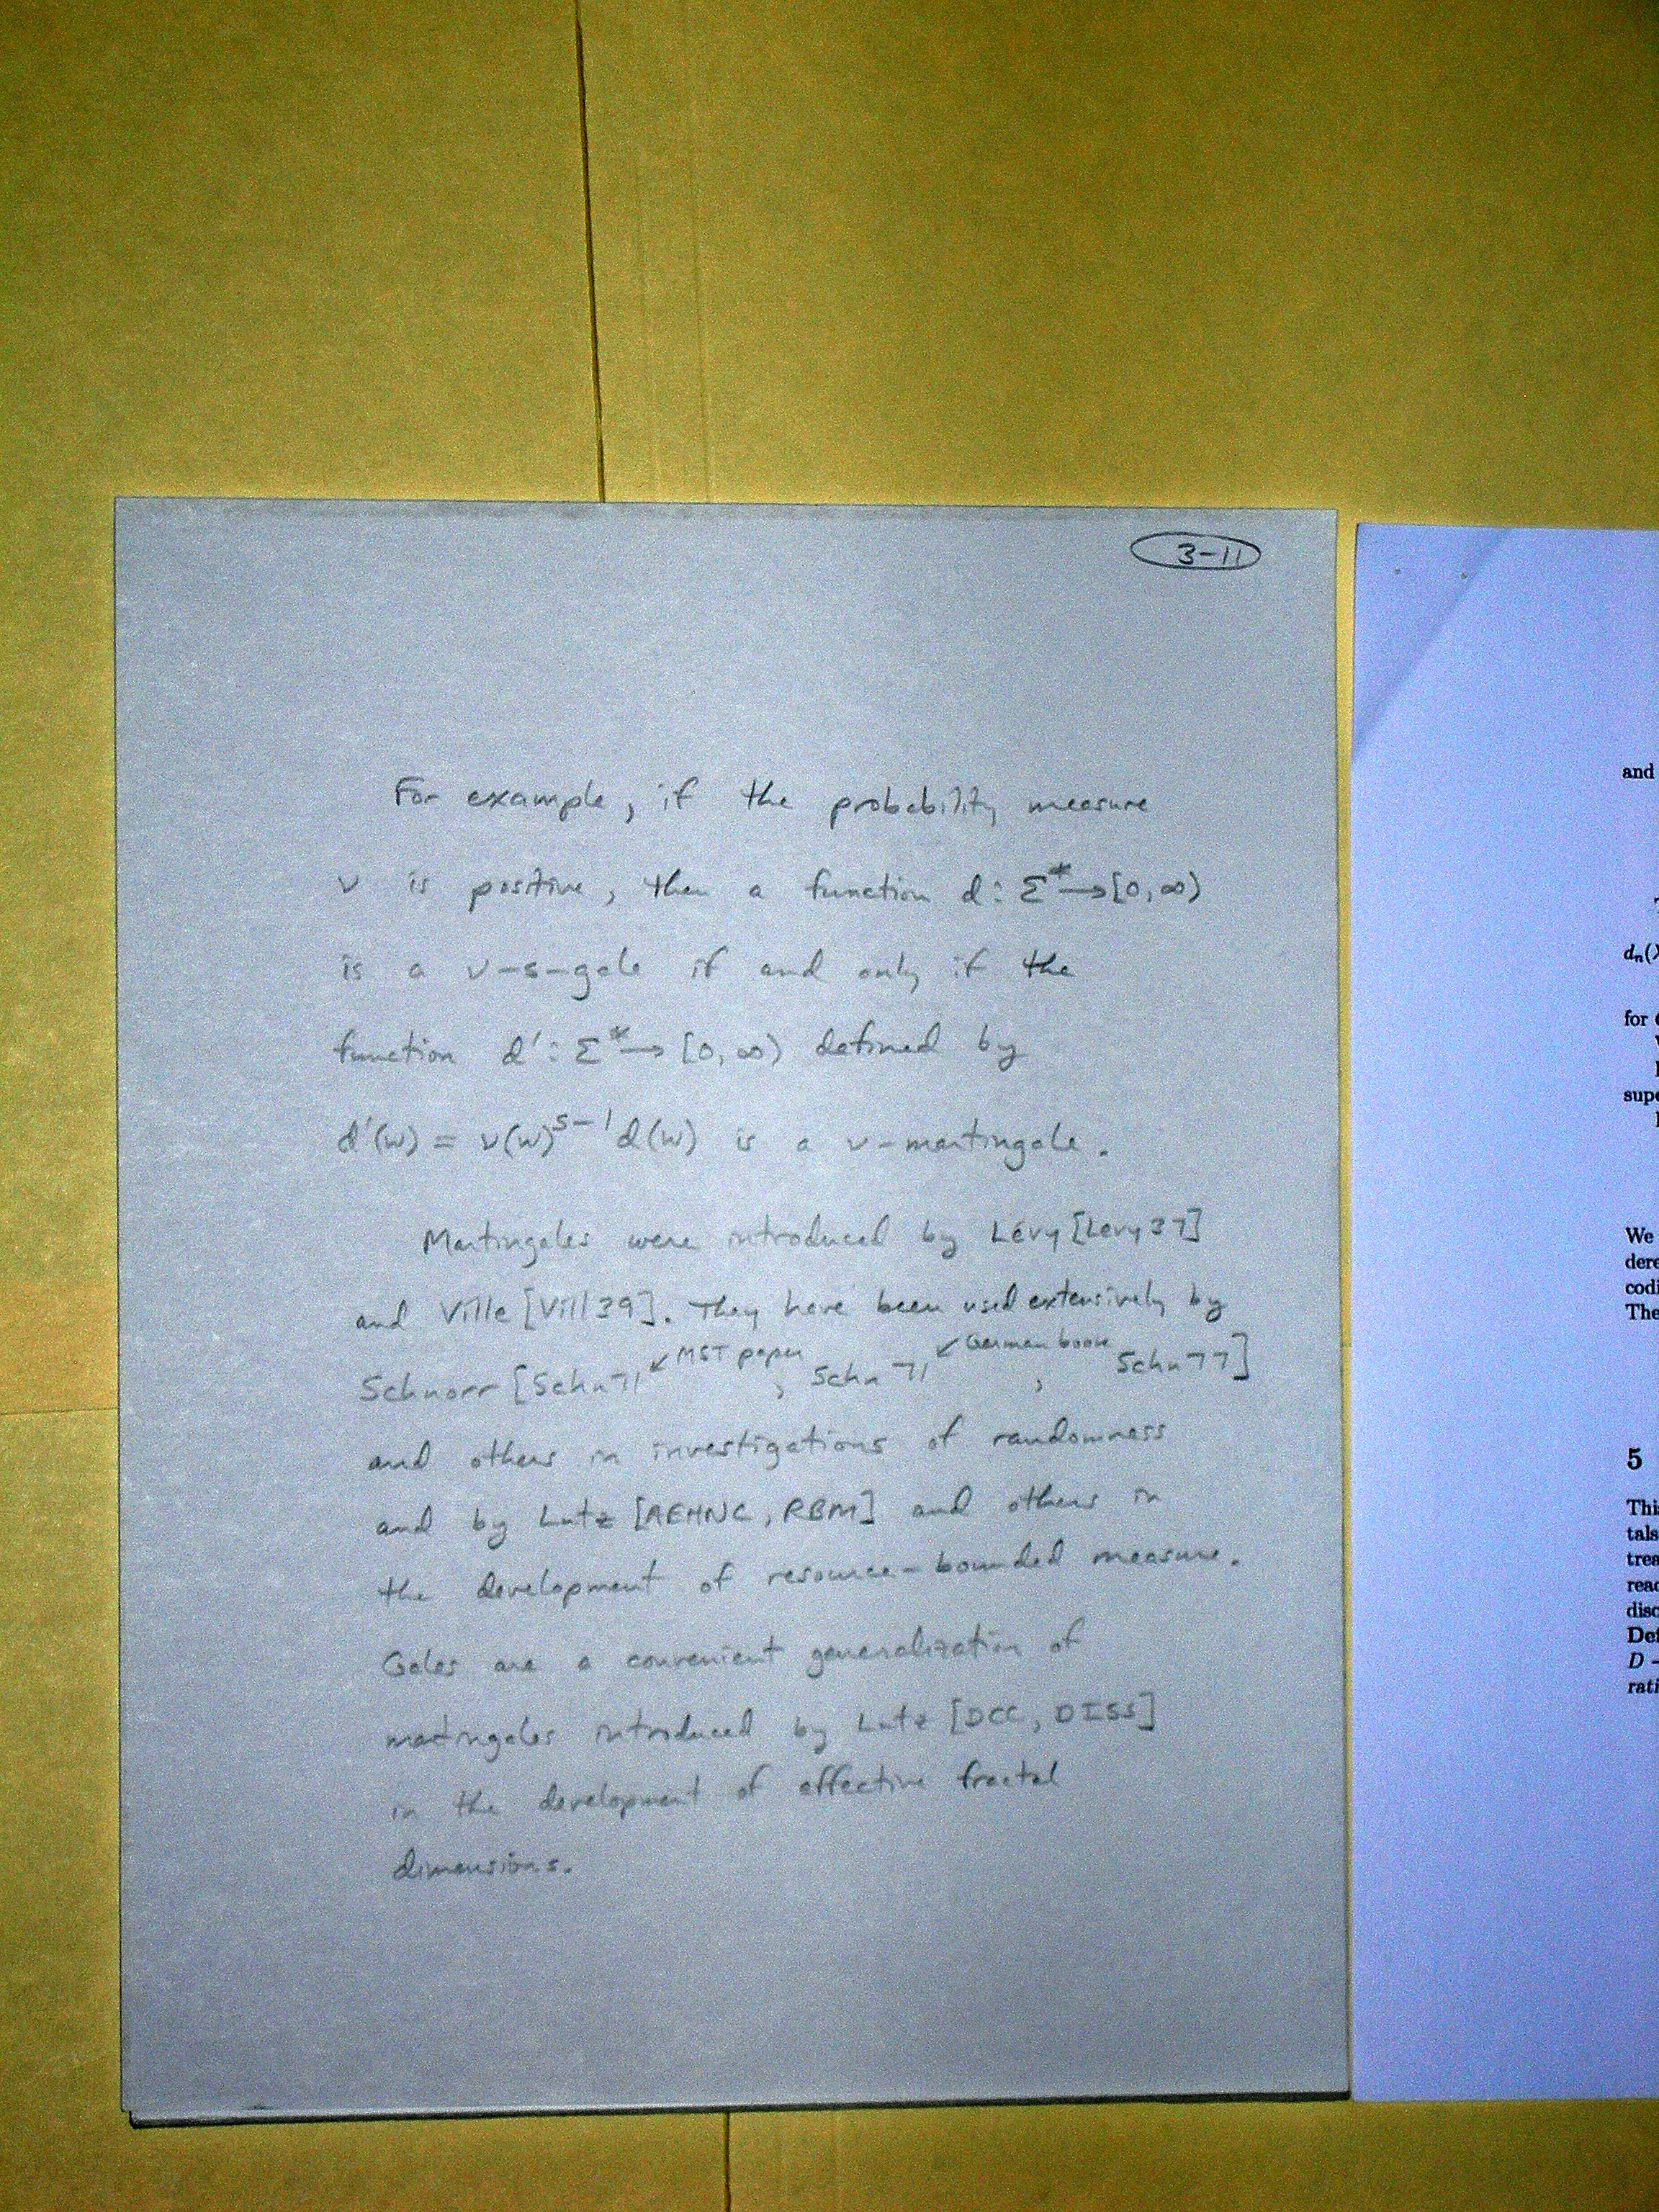 3-11
For example, if the probability measure
ν is positive, then a function d: Σ* → [0, ∞)
is a ν-s-gale if and only if the
function d′: Σ* → [0, ∞) defined by
d′(w) = ν(w)^{s-1} d(w) is a ν-martingale.
Martingales were introduced by Lévy [Levy37]
and Ville [Vill39]. They have been used extensively by
Schnorr [Schn71 ↙ MST paper, Schn71 ↙ German book, Schn77]
and others in investigations of randomness
and by Lutz [AEHNC, RBM] and others in
the development of resource-bounded measure.
Gales are a convenient generalization of
martingales introduced by Lutz [DCC, DISS]
in the development of effective fractal
dimensions.
and
d_n(λ
for
supe
We
dere
codi
The
5
This
tals
trea
read
disc
Def
D -
rati